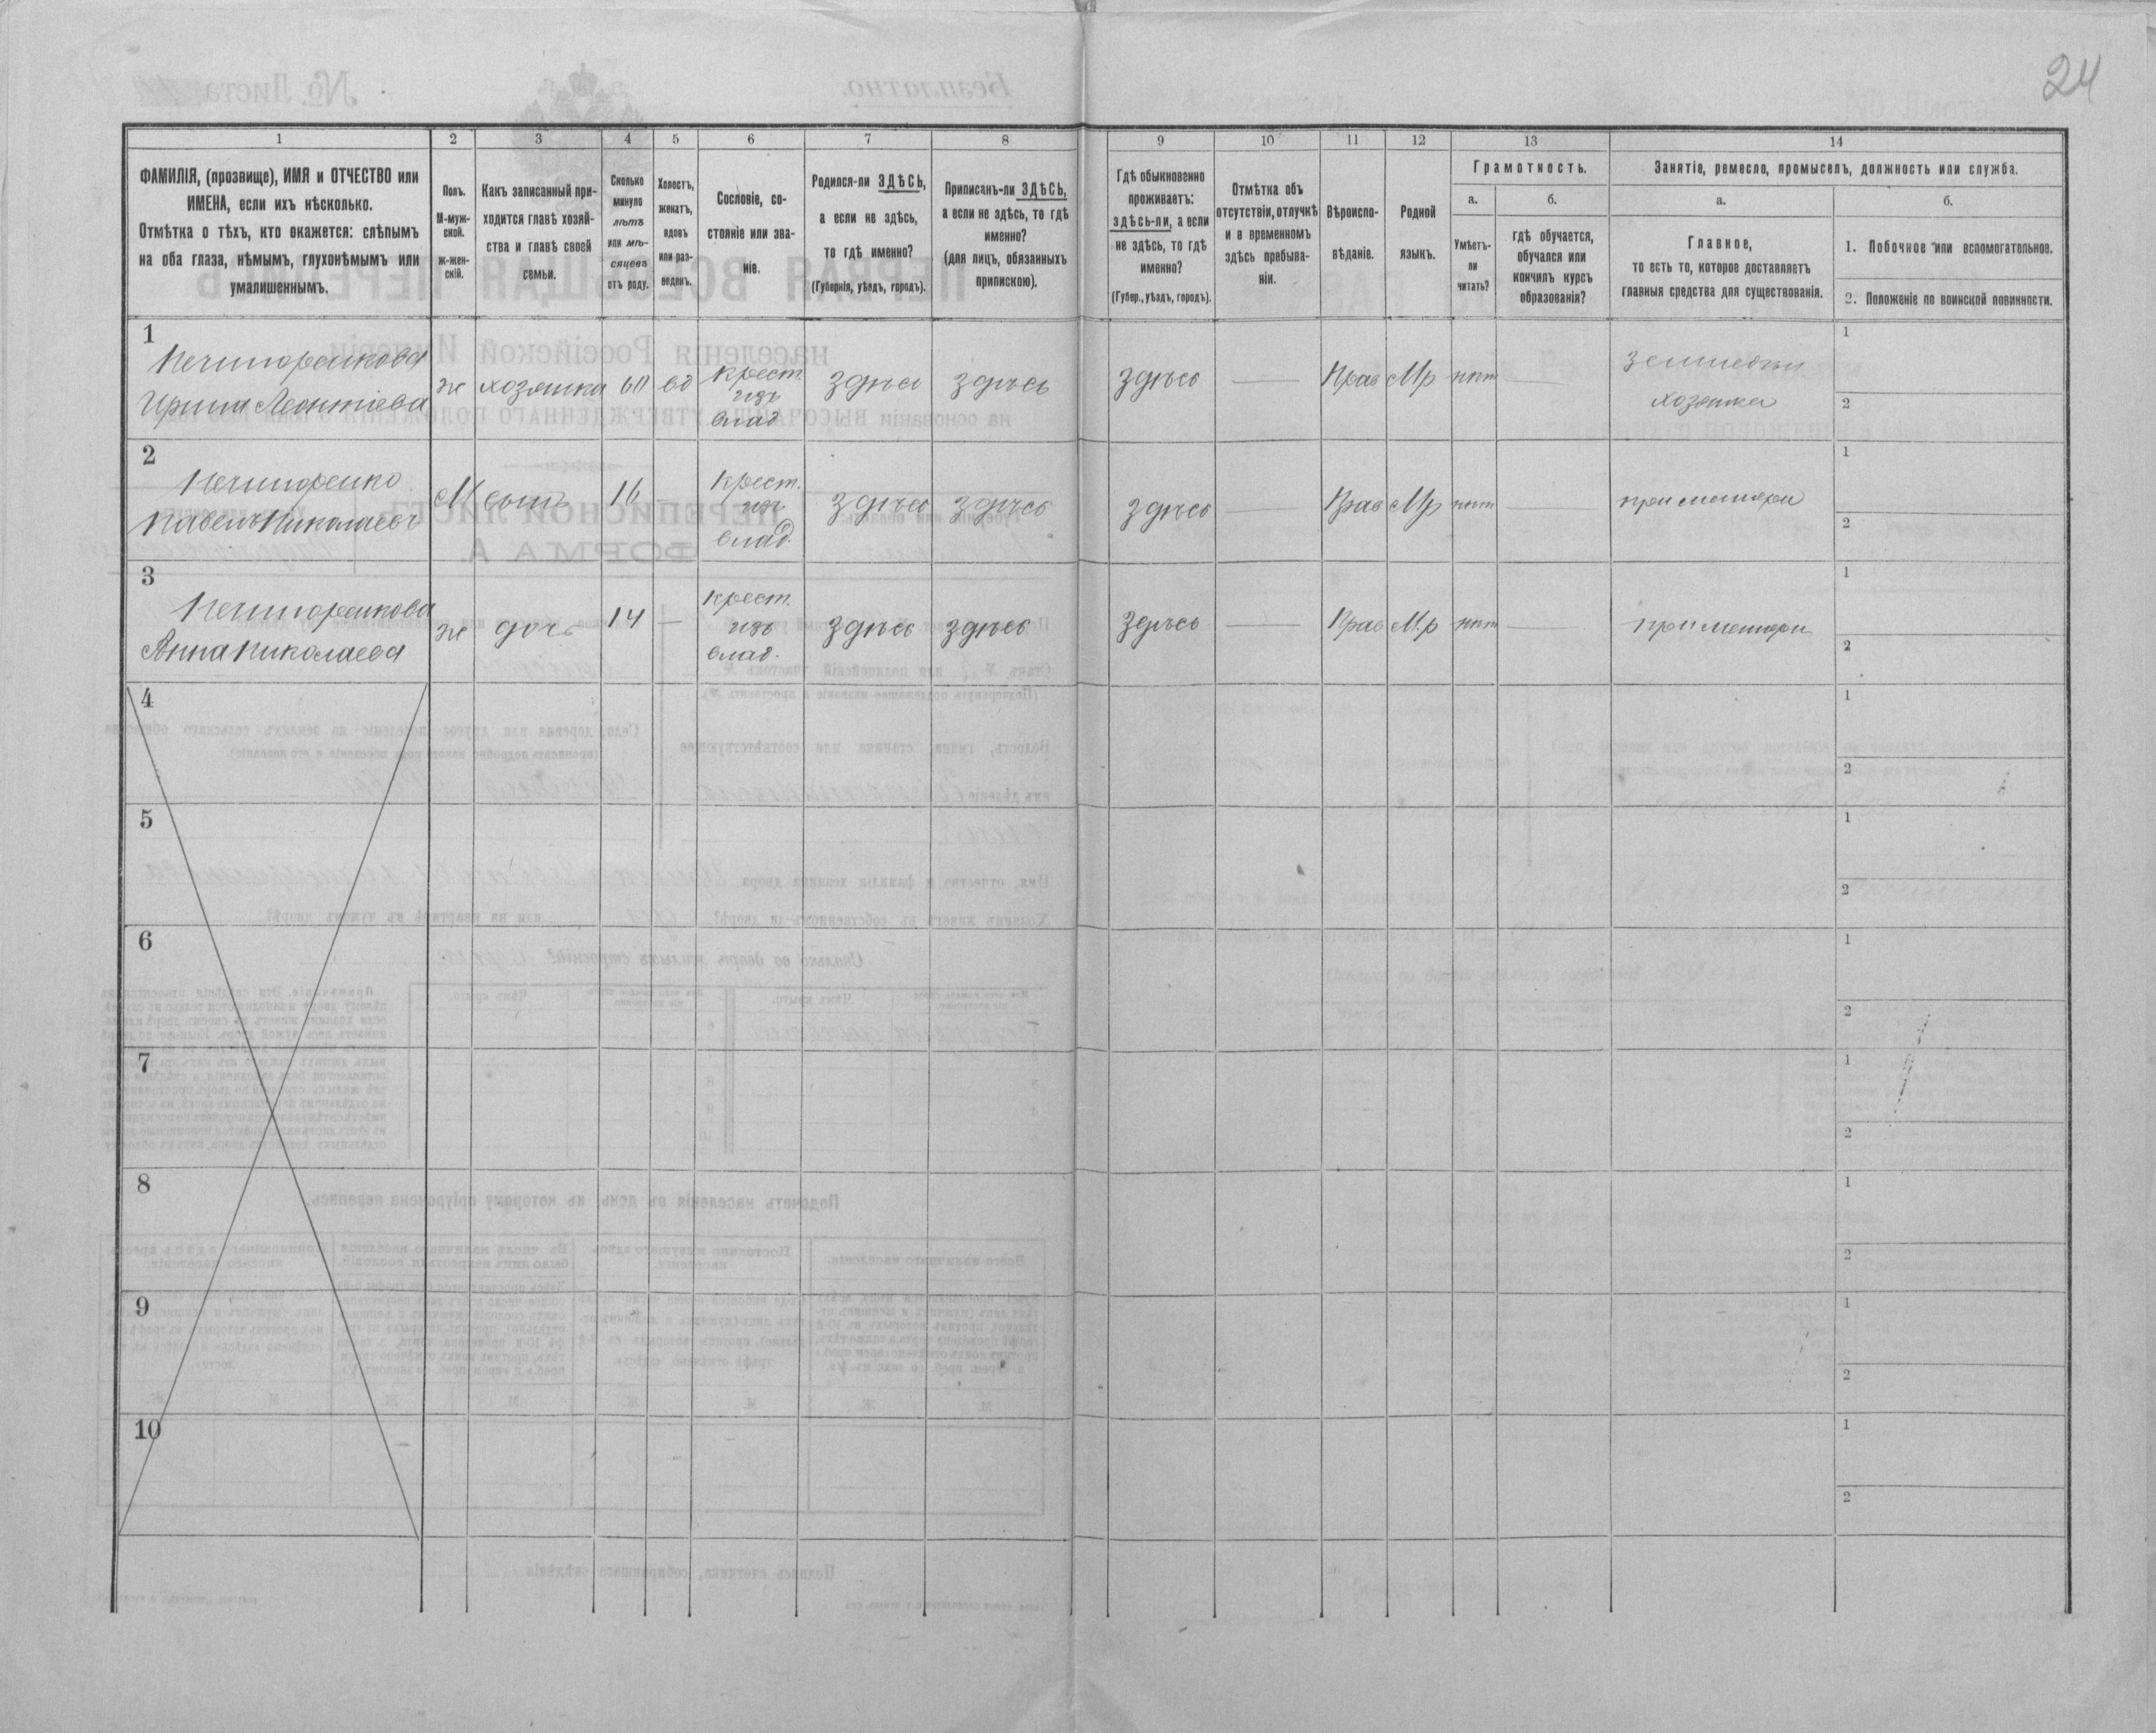 24
1 2 3 4 5 6 7 8 9 10 11 12 13 14
ФАМИЛІЯ, (прозвище), ИМЯ и ОТЧЕСТВО или
ИМЕНА, если ихъ нѣсколько.
Отмѣтка о тѣхъ, кто окажется: слѣпымъ
на оба глаза, нѣмымъ, глухонѣмымъ или
умалишеннымъ.
Полъ.
М-муж-
ской.
ж-жен-
скій.
Какъ записанный при-
ходится главѣ хозяй-
ства и главѣ своей
семьи.
Сколько
минуло
лѣтъ
или мѣ-
сяцевъ
отъ роду.
Холостъ,
женатъ,
вдовъ
или раз-
веденъ.
Сословіе, со-
стояніе или зва-
ніе.
Родился-ли ЗДѢСЬ,
а если не здѣсь,
то гдѣ именно?
(Губернія, уѣздъ, городъ).
Приписанъ-ли ЗДѢСЬ,
а если не здѣсь, то гдѣ
именно?
(для лицъ, обязанныхъ
припискою).
Гдѣ обыкновенно
проживаетъ:
здѣсь-ли, а если
не здѣсь, то гдѣ
именно?
(Губер., уѣздъ, городъ).
Отмѣтка объ
отсутствіи, отлучкѣ
и о временномъ
здѣсь пребыва-
ніи.
Вѣроиспо-
вѣданіе.
Родной
языкъ.
Грамотность.
а.
Умѣетъ-
ли
читать?
б.
гдѣ обучается,
обучался или
кончилъ курсъ
образованія?
Занятіе, ремесло, промыселъ, должность или служба.
а.
Главное,
то есть то, которое доставляетъ
главныя средства для существованія.
б.
1. Побочное или вспомогательное.
2. Положеніе по воинской повинности.
1
Нечипоренкова
Ирина Леонтіева
ж хозяйка 60 вд
Крест.
изъ
влад
здѣсь здѣсь здѣсь — Прав Мр нѣт —
хозяйка
1
2
2
Нечипоренко
Павелъ Николаевъ
М сынъ 16 —
Крест.
изъ
влад.
здѣсь здѣсь здѣсь — Прав Мр нѣт — при матери
1
2
3
Нечипоренкова
Анна Николаева
ж дочь 14 —
крест.
изъ
влад.
здѣсь здѣсь здѣсь — Прав М.р нѣт — при матери
1
2
4
1
2
5
1
2
6
1
2
7
1
2
8
1
2
9
1
2
10
1
2